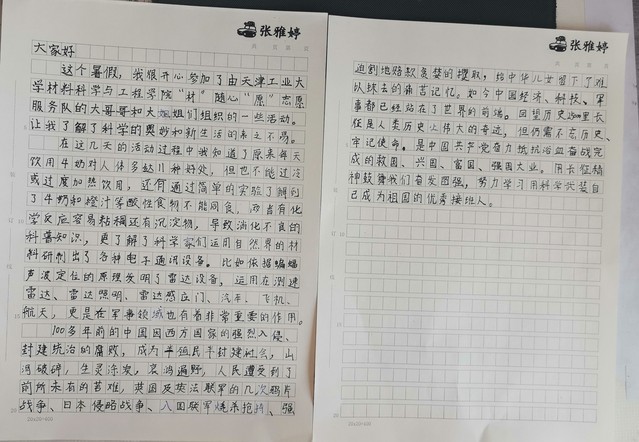 张雅婷
大家好
这个暑假，我很开心参加了由天津工业大
学材料科学与工程学院“材”随心“愿”志愿
服务队的大哥哥和大姐姐们组织的一些活动。
让我了解了科学的奥妙和新生活的来之不易。
在这几天的活动过程中我知道了原来每天
饮用牛奶对人体多达11种好处，但也不能过凉
或过度加热饮用，还有通过简单的实验了解到
了牛奶和橙汁等酸性食物不能同食，两者有化
学反应容易粘稠还有沉淀物，导致消化不良的
科普知识，更了解了科学家们运用自然界的材
料研制出了各种电子通讯设备。比如依据蝙蝠
声波定位的原理发明了雷达设备，运用在测速
雷达、雷达照明、雷达感应门、汽车、飞机、
航天，更是在军事领域也有着非常重要的作用。
100多年前的中国因西方国家的强烈入侵、
封建统治的腐败，成为半殖民半封建社会，山
河破碎，生灵涂炭，哀鸿遍野，人民遭受到了
前所未有的苦难，英国及英法联军的几次鸦片
战争、日本侵略战争、八国联军烧杀抢掠、强
张雅婷
迫割地赔款贪婪的攫取，给中华儿女留下了难
以抹去的痛苦记忆。如今中国经济、科技、军
事都已经站在了世界的前端。回望历史2500里长
征是人类历史上伟大的奇迹，但仍需不忘历史、
牢记使命。是中国共产党奋力抵抗浴血奋战完
成的救国、兴国、富国、强国大业。用长征精
神鼓舞我们奋发图强，努力学习用科学武装自
己成为祖国的优秀接班人。